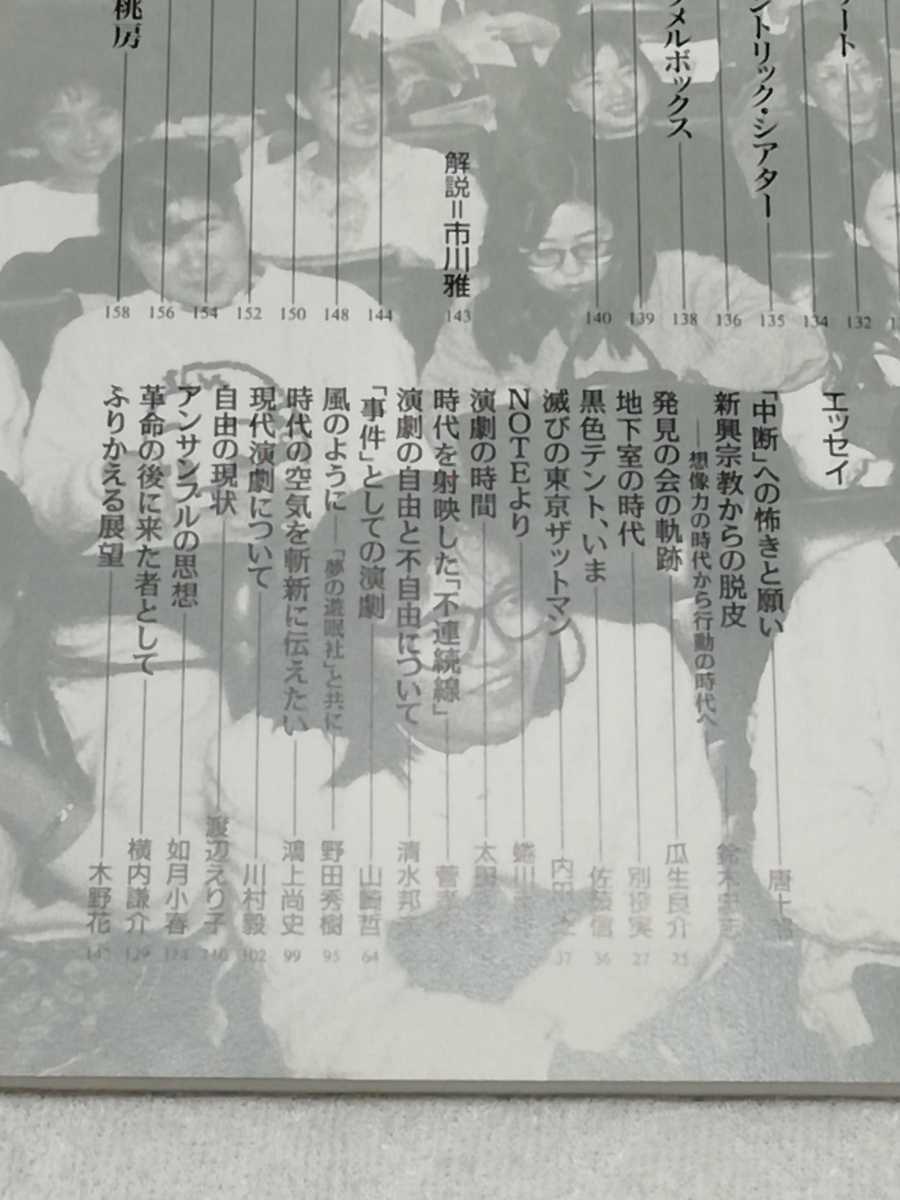 ート
ントリック・シアター
メルボックス
桃房
132
134
135
136
138
139
140
解説=市川雅
143
144
148
150
152
154
156
158
エッセイ
「中断」への怖きと願い
新興宗教からの脱皮
――想像力の時代から行動の時代へ
発見の会の軌跡 瓜生良介 25
地下室の時代 別役実 27
黒色テント、いま 佐藤信 36
滅びの東京ザットマン 37
NOTEより
演劇の時間
時代を射映した「不連続線」
演劇の自由と不自由について 清水邦夫
「事件」としての演劇 山崎哲 64
風のように――「夢の遊眠社」と共に 野田秀樹 95
時代の空気を斬新に伝えたい 鴻上尚史 99
現代演劇について 川村毅 102
自由の現状 渡辺えり子
アンサンブルの思想 如月小春
革命の後に来た者として 横内謙介 129
ふりかえる展望 木野花